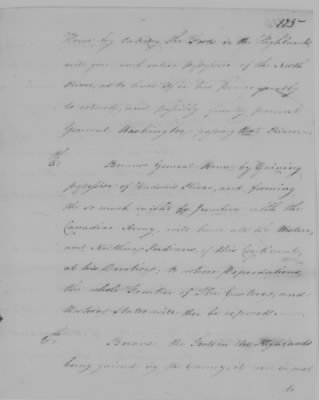 185
Howe by taking the Forts in the Highlands
will give such entire possession of the North
River, as to have it in his power greatly
to retard, and possibly finally prevent
General Washington, passing that River
5th: Because General Howe, by Gaining
possession of Hudsons River, and forming
the so much wished for Junction with the
Canadian Army, will have all the Western,
and Northern Indians, of this Continent,
at his Devotion; to whose Depredations,
the whole Frontier of The Eastern, and
Western States will then be exposed.
6th: Because the Forts in the Highlands
being gained by the Enemy, it will be
to